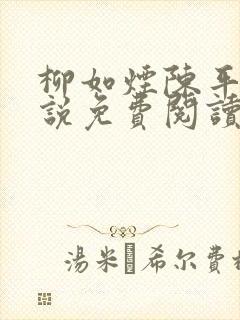 柳如煙陳平
說免費閱讀
湯米 希尔費